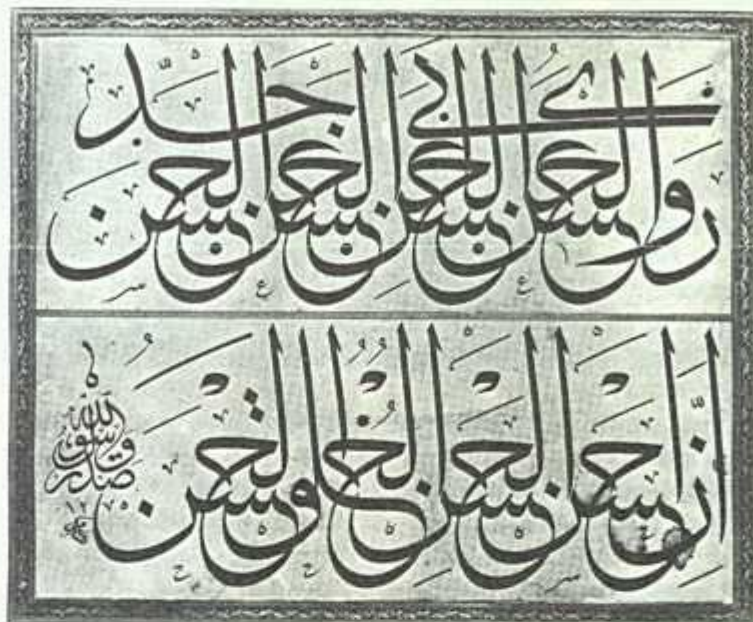 روى الحسن عن الحسن عن ابى الحسن عن جد الحسن
انّ احسن الحسن الخلق الحسن
صدق رسول الله
١٢٧٥